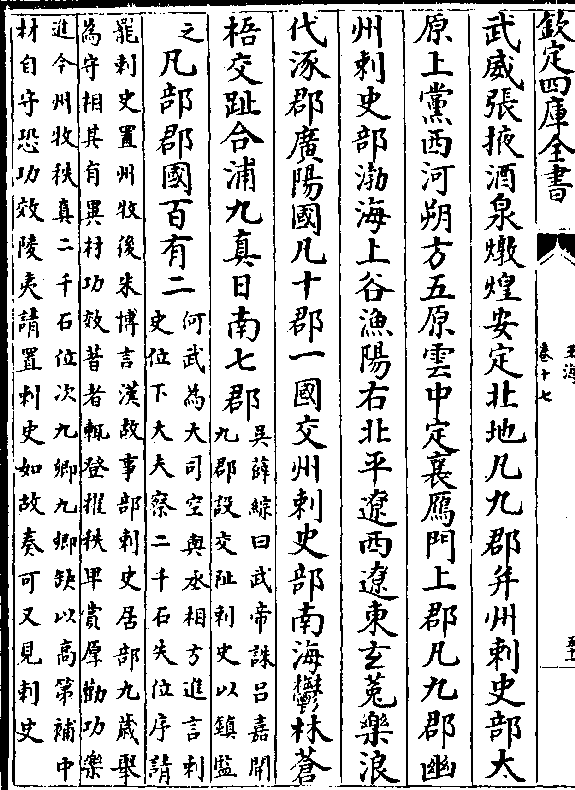 欽定四庫全書
玉海
卷十七
武威張掖酒泉燉煌安定北地凡九郡并州刺史部太
原上黨西河朔方五原雲中定襄鴈門上郡凡九郡幽
州刺史部渤海上谷漁陽右北平遼西遼東玄菟樂浪
代涿郡廣陽國凡十郡一國交州刺史部南海鬱林蒼
梧交趾合浦九真日南七郡
吳薛綜曰武帝誅呂嘉開
九郡設交趾刺史以鎮監
之
凡部郡國百有二
何武為大司空與丞相方進言刺
史位下大夫察二千石失位序請
罷刺史置州牧後朱博言漢故事部刺史居部九歲舉
為守相其有異材功效著者輒登擢秩卑賞厚勸功樂
進今州牧秩真二千石位次九卿九卿缺以高第補中
材自守恐功效陵夷請置刺史如故奏可又見刺史